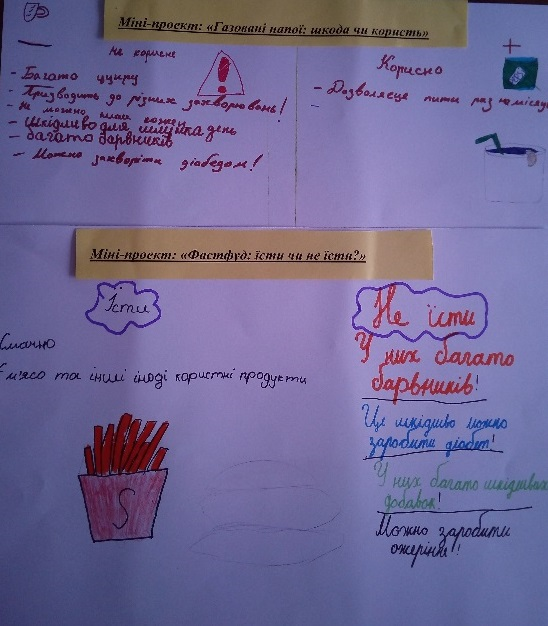 Міні-проект: «Газовані напої: шкода чи користь»
Не корисне
- Багато цукру
- Призводить до різних захворювань!
- Не можно пити кожен день
- шкідливо для шлунка
- багато барвників
- Можно захворіти діабедом!
+
Корисно
- Дозволяєце пити раз на місяць
-
Міні-проект: «Фастфуд: їсти чи не їсти?»
Їсти
Смачно
Є м'ясо та інші іноді корисні продукти
S
Не їсти
У них багато
барвників!
Це шкідливо можно
заробити діабет!
У них багато шкідливих
добавок!
Можно заробити
ожеріння!